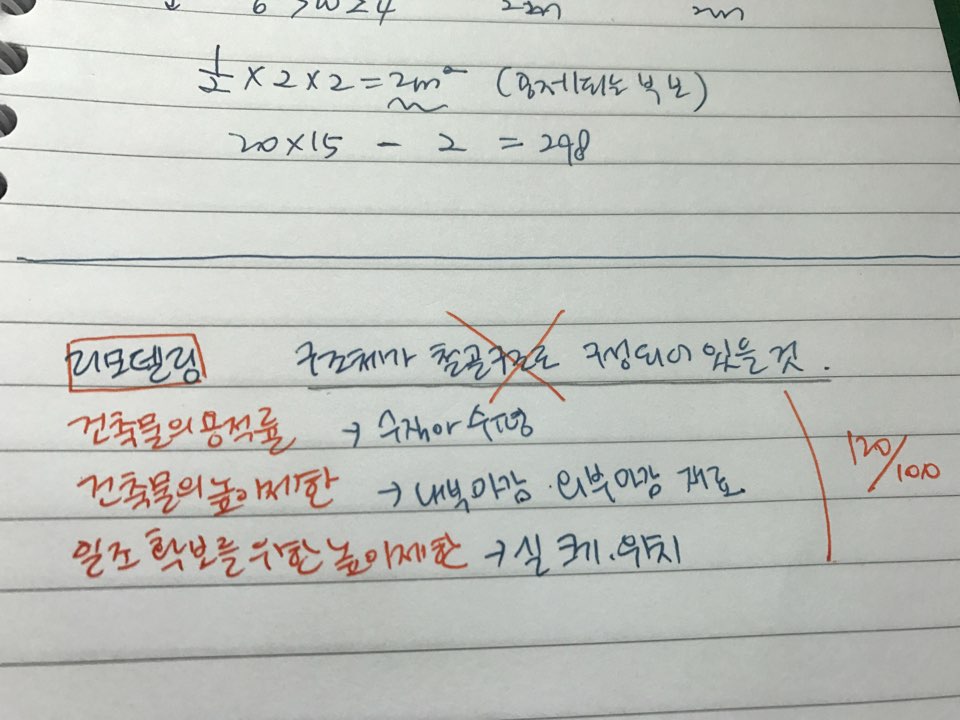 6 > W ≥ 4 2m 2m
1/2 × 2 × 2 = 2m² (공제되는 부분)
20×15 - 2 = 298
리모델링 구조체가 철골구조로 구성되어 있을 것.
건축물의 용적률 → 수직아 수평
건축물의 높이제한 → 내부마감·외부마감 재료
일조 확보를 위한 높이제한 → 실 크기·위치
120/100